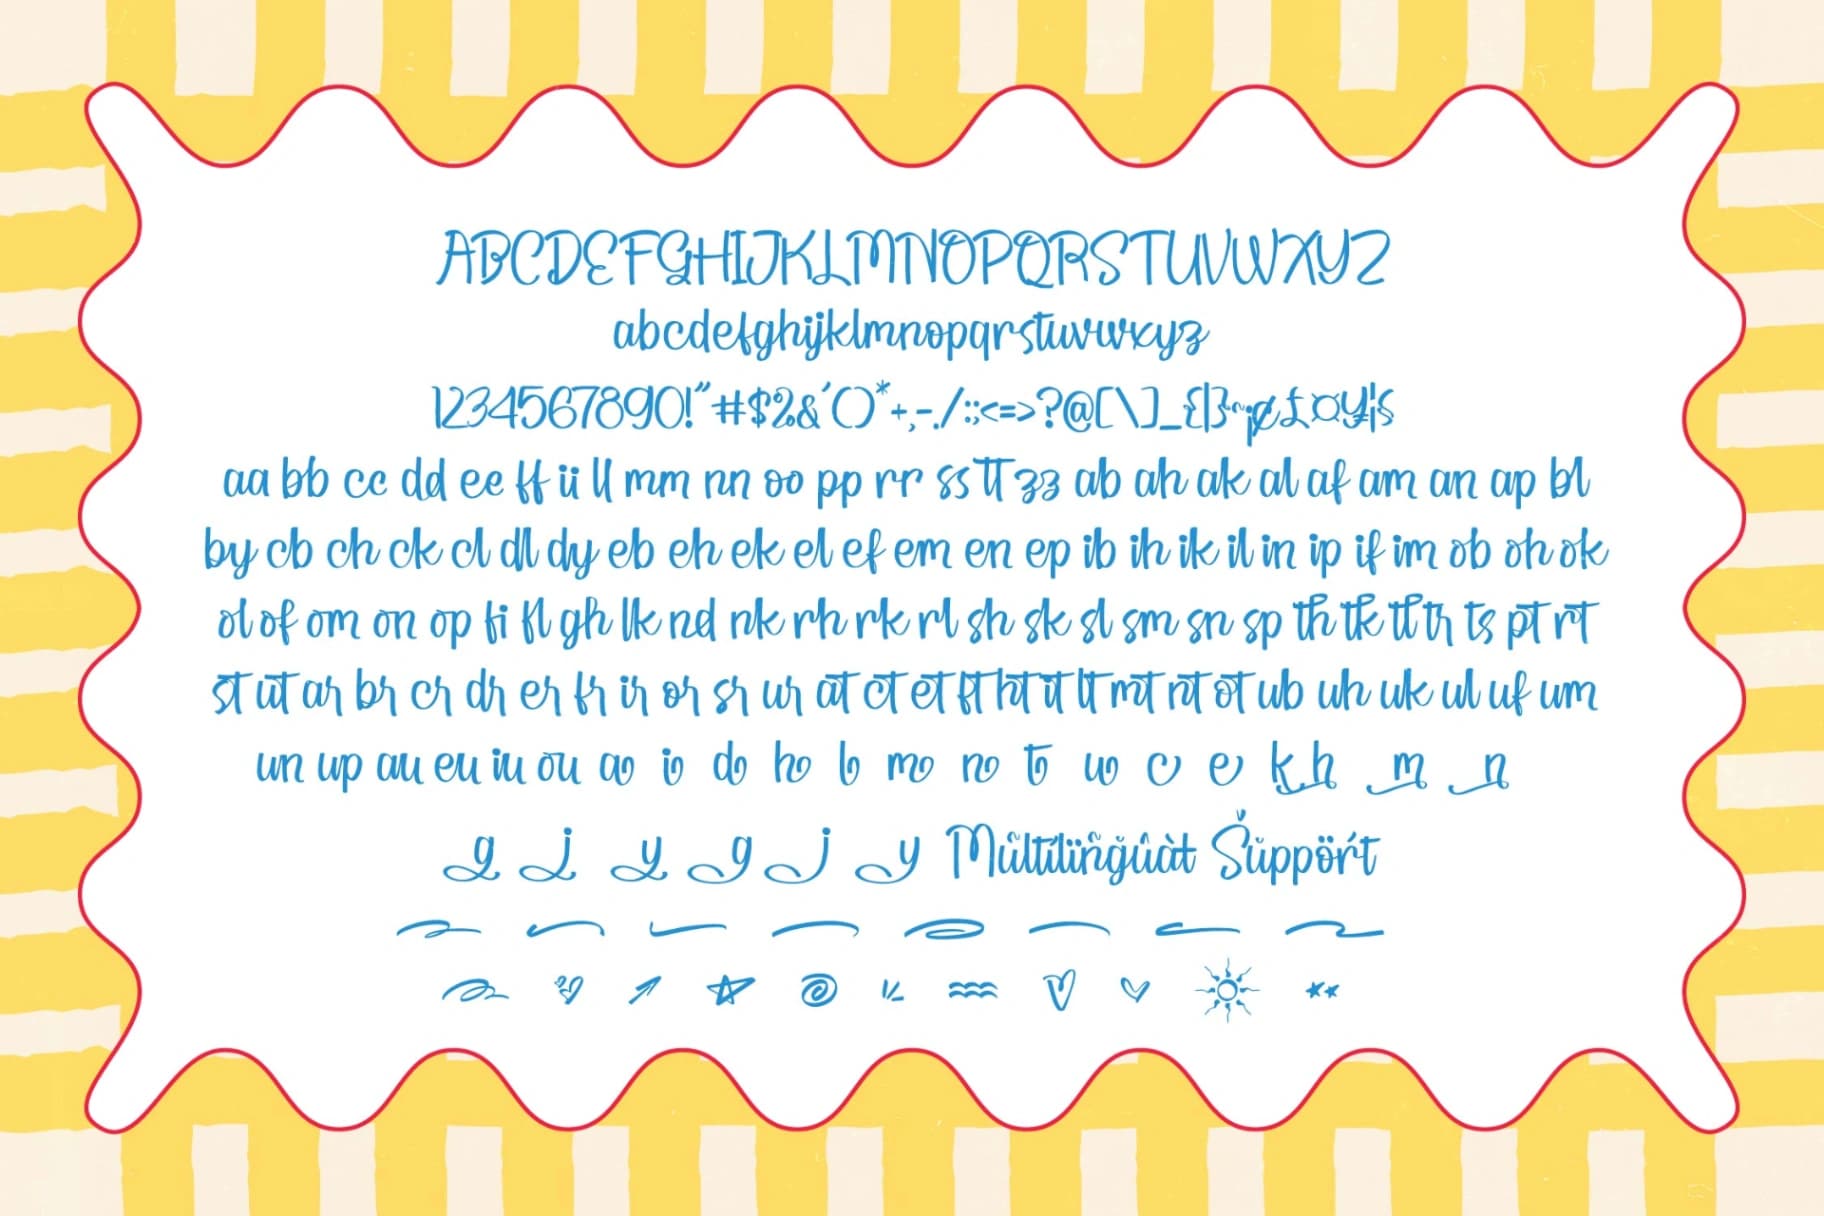 ABCDEFGHIJKLMNOPQRSTUVWXYZ
abcdefghijklmnopqrstuvwxyz
1234567890!"#$%&'()*+,-./:;<=>?@[\]_{|}~¡¢£¤¥¦§
aa bb cc dd ee ff ii ll mm nn oo pp rr ss tt zz ab ah ak al af am an ap bl
by cb ch ck cl dl dy eb eh ek el ef em en ep ib ih ik il in ip if im ob oh ok
ol of om on op fi fl gh lk nd nk rh rk rl sh sk sl sm sn sp th tk tl tr ts pt rt
st ut ar br cr dr er fr ir or sr ur at ct et ft ht it lt mt nt ot ub uh uk ul uf um
un up au eu iu ou a i d h l m n t u c e k h m n
g j y g j y Mũltílïñğûàt Šŭppörť